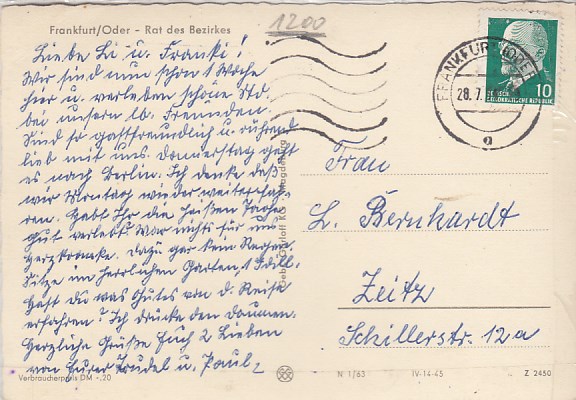 1200
Frankfurt/Oder - Rat des Bezirkes
Liebe Li u. Franki!
Wir sind nun schon 1 Woche
hier u. verleben schöne Std.
bei unsern lb. Freunden.
Sind so gastfreundlich u. rührend
lieb mit uns. Donnerstag geht
es nach Berlin. Ich denke daß
wir Montag wieder weiterfah-
ren. Habt Ihr die heißen Tage
gut verlebt? War nichts für uns
Herzkranke. Dazu gar kein Regen.
Sitze im herrlichen Garten, 1 Idill.
Hast du was Gutes von d. Reise
erfahren? Ich drücke den Daumen.
Herzliche Grüße Euch 2 Lieben
von Eurer Trudel u. Paul,
Verbraucherpreis DM -,20
Magdeburg
FRANKFURT (ODER)
28. 7.
a
10
DEMOKRATISCHE REPUBLIK
Frau
L. Bernhardt
Zeitz
Schillerstr. 12a
N 1/63 IV-14-45 Z 2450